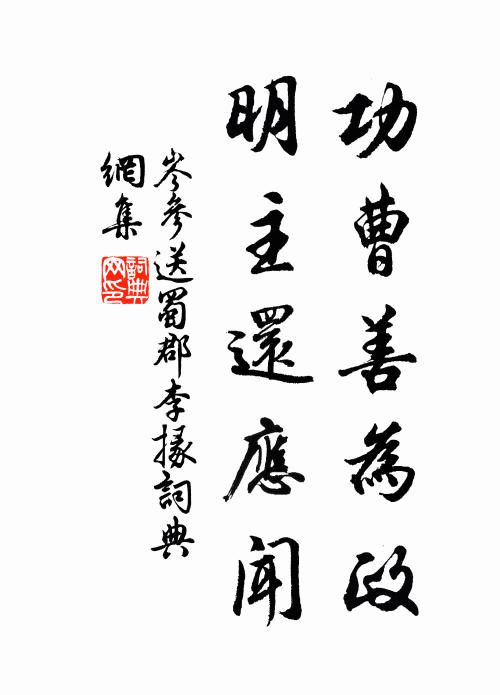 功曹善為政
明主還應聞
岑參送蜀郡李掾詞典
網集
詞典網印